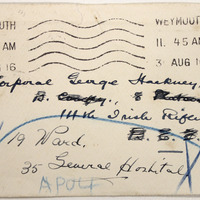 UTH WEYMOUTH
AM 11. 45 AM
16 3 AUG 16
Corporal George Hackney
B. Coy., 8
14th Irish Rifles
B. E. F.
19 Ward.
35 General Hospital